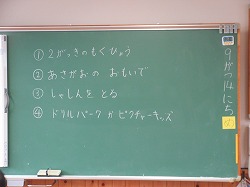 ① 2がっきのもくひょう
② あさがおの おもいで
③ しゃしんを とる
④ ドリルパーク か ピクチャーキッズ
9がつ14にち